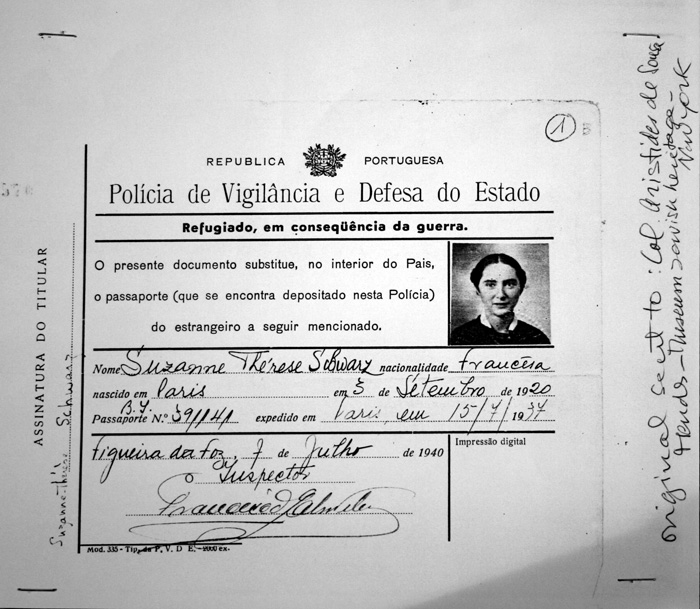 1
REPUBLICA PORTUGUESA
Polícia de Vigilância e Defesa do Estado
Refugiado, em conseqüência da guerra.
O presente documento substitue, no interior do Pais,
o passaporte (que se encontra depositado nesta Polícia)
do estrangeiro a seguir mencionado.
Nome Suzanne Thérese Schwarz nacionalidade francêsa
nascido em Paris em 5 de Setembro de 1920
B.I.
Passaporte N.º 391141 expedido em Paris, em 15/7/1937
Figueira da Foz, 7 de Julho de 1940
Impressão digital
O Inspector
Mod. 335 - Tip. da P. V. D E. -
ASSINATURA DO TITULAR
Suzanne-Thérèse Schwarz
original sent to: Col. Aristides de Sousa
Mendes - Museum Jewish heritage -
New York